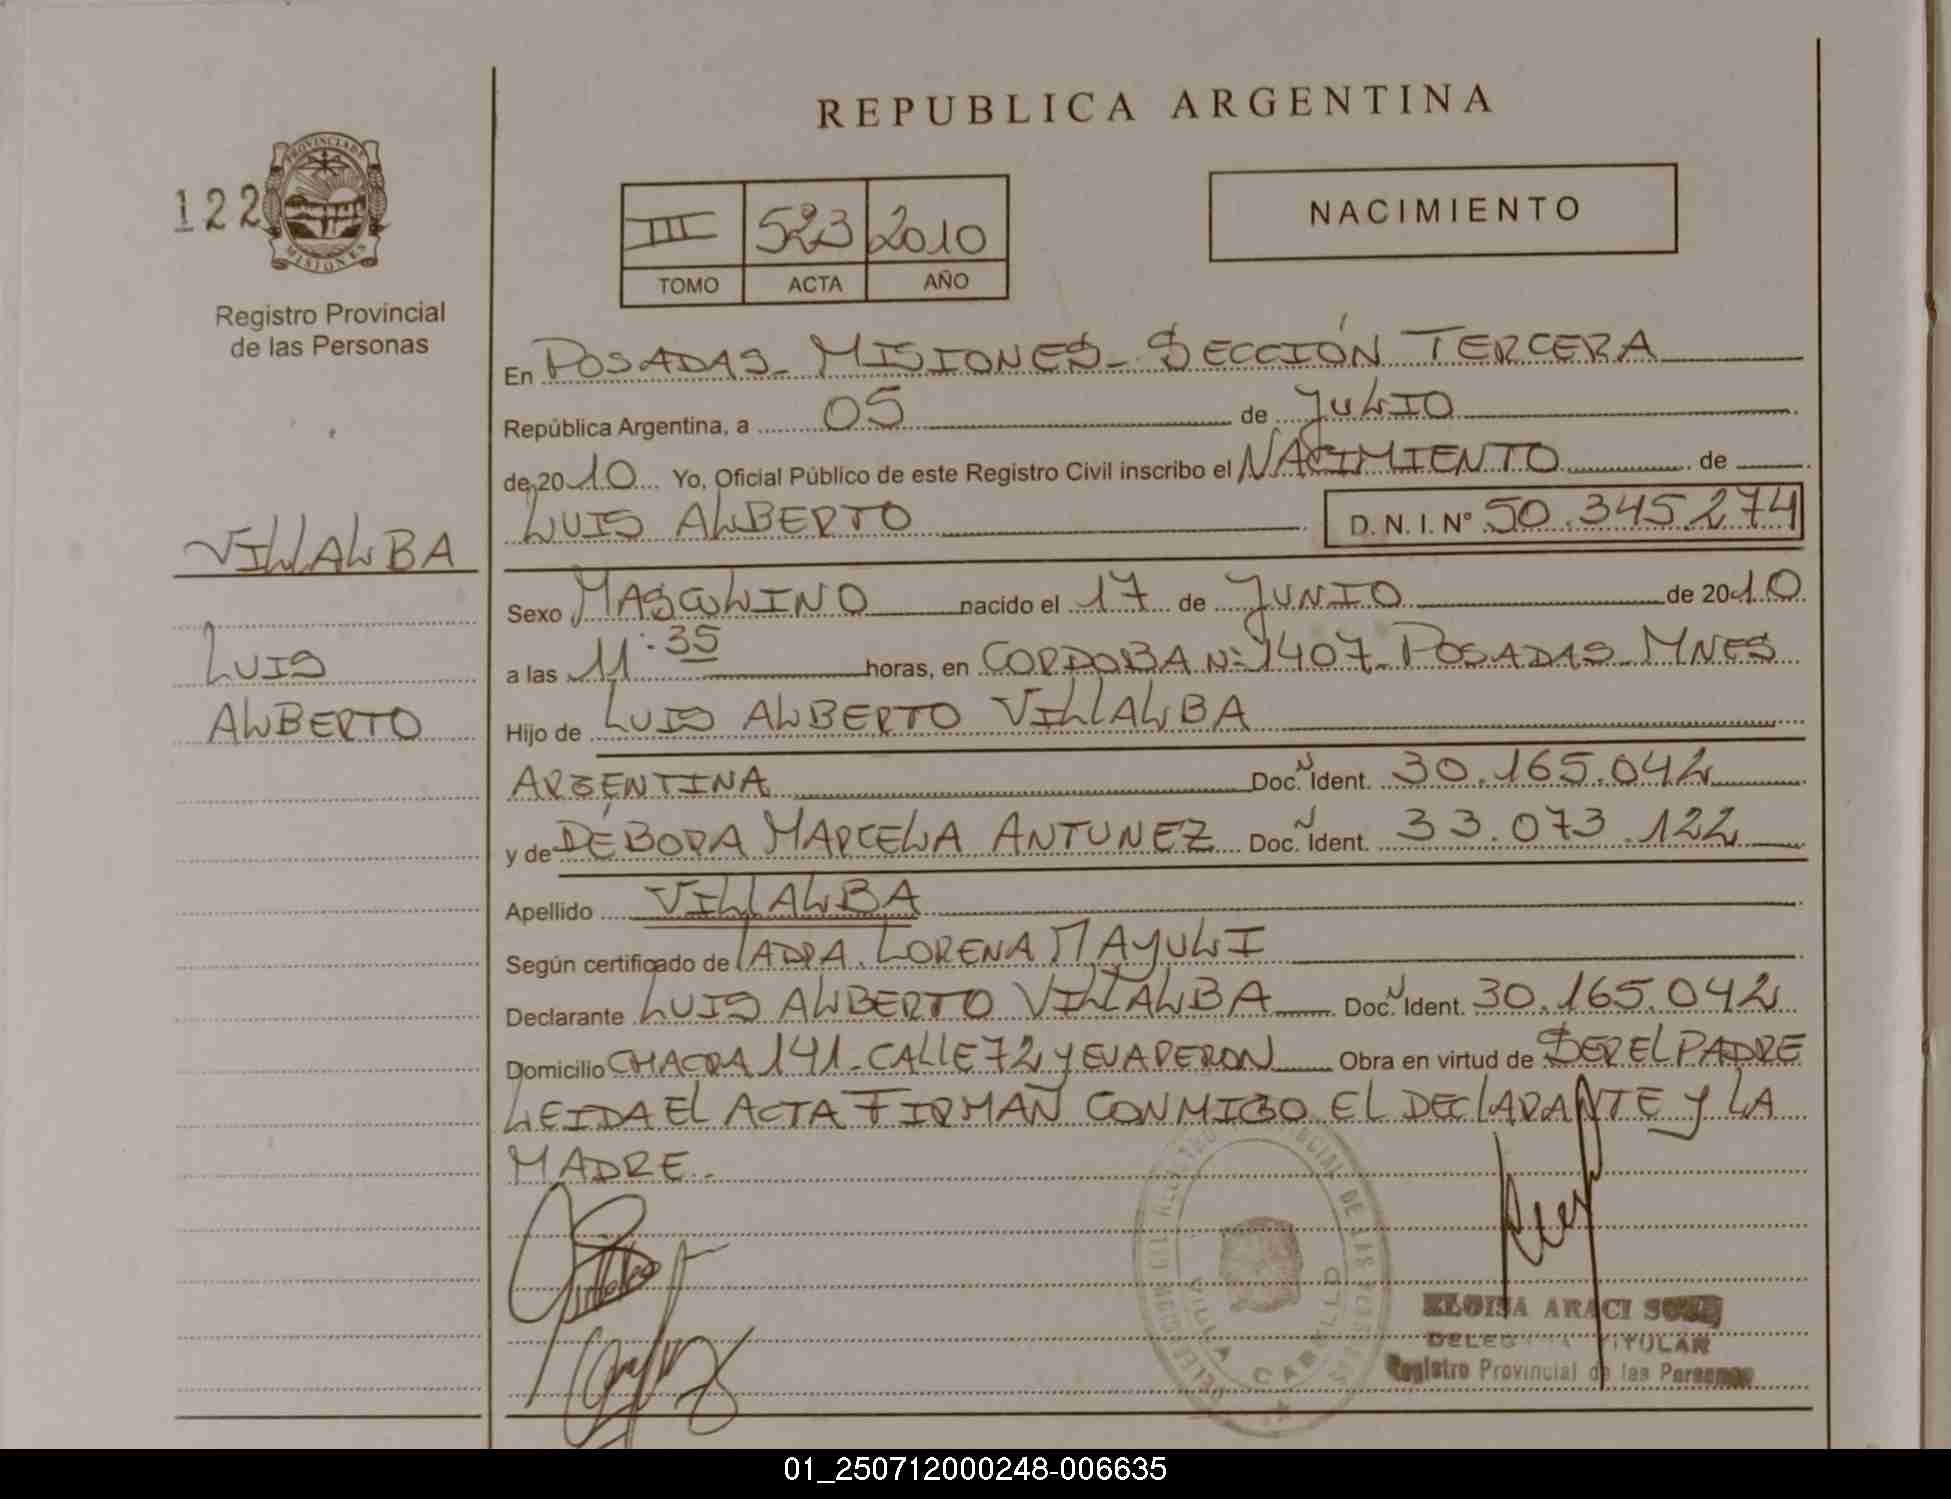 REPUBLICA ARGENTINA
122
PROVINCIA DE
MISIONES
Registro Provincial
de las Personas
III 523 2010
TOMO ACTA AÑO
NACIMIENTO
En POSADAS - MISIONES - SECCIÓN TERCERA
República Argentina, a 05 de JULIO
de 2010 Yo, Oficial Público de este Registro Civil inscribo el NACIMIENTO de
LUIS ALBERTO D. N. I. N° 50.345.274
VILLALBA
LUIS
ALBERTO
Sexo MASCULINO nacido el 17 de JUNIO de 2010
a las 11:35 horas, en CORDOBA Nº 1407 - POSADAS - MNES
Hijo de LUIS ALBERTO VILLALBA
ARGENTINA Doc. N Ident. 30.165.042
y de DÉBORA MARCELA ANTUNEZ Doc. N Ident. 33.073.122
Apellido VILLALBA
Según certificado de LA DRA. LORENA MAYULI
Declarante LUIS ALBERTO VILLALBA Doc. N Ident. 30.165.042
Domicilio CHACRA 141 - CALLE 72 Y EVA PERON Obra en virtud de SER EL PADRE
LEIDA EL ACTA FIRMAN CONMIGO EL DECLARANTE Y LA
MADRE.-
VILLA CABELLO
ELOISA ARACI
TITULAR
Registro Provincial de las Personas
01_250712000248-006635